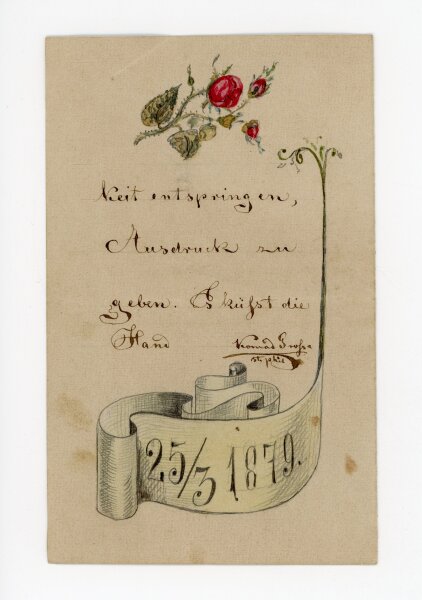 keit entspringen,
Ausdruck zu
geben. Es küsst die
Hand Konrad Grosse
25/3 1879.